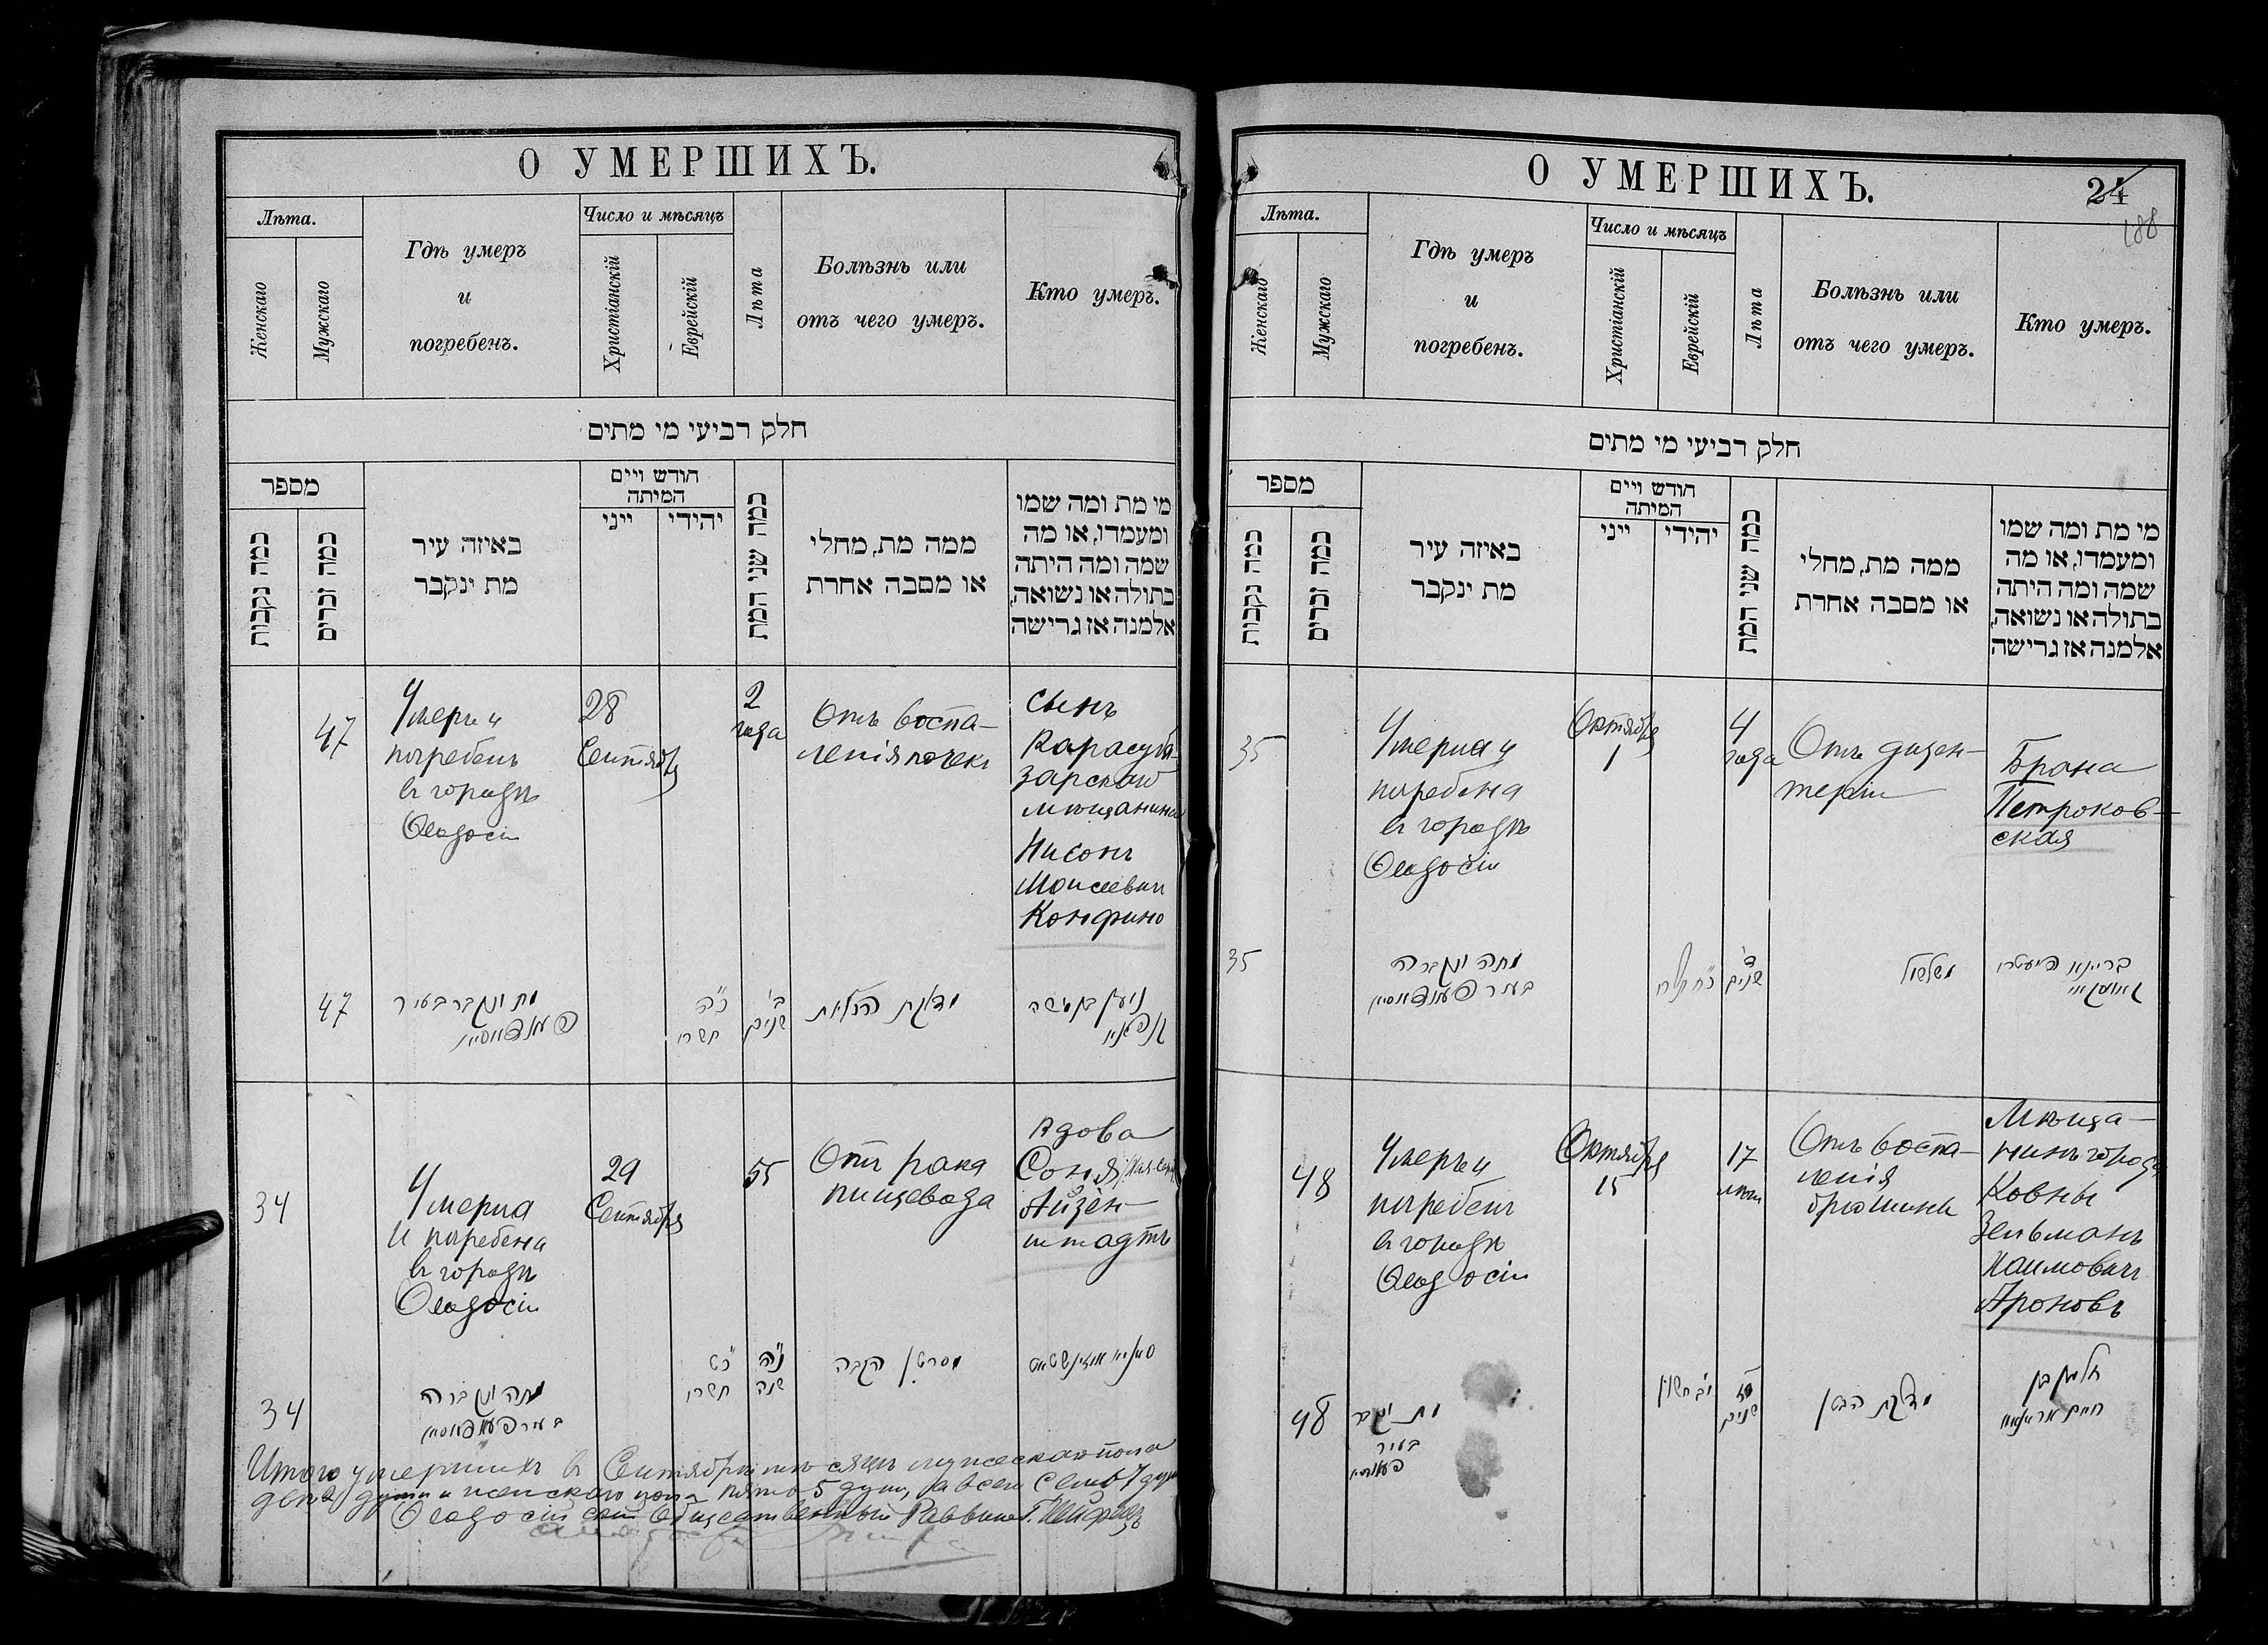 О УМЕРШИХЪ.
Лѣта.
Женскаго
Мужскаго
Гдѣ умеръ
и
погребенъ.
Число и мѣсяцъ
Христіанскій
Еврейскій
Лѣта
Болѣзнь или
отъ чего умеръ.
Кто умеръ.
חלק רביעי מי מתים
מספר
כמה נקבות
כמה זכרים
באיזה עיר
מת ינקבר
חודש ויים
המיתה
ייני
יהודי
כמה שני המת
ממה מת, מחלי
או מסבה אחרת
מי מת ומה שמו
ומעמדו, או מה
שמה ומה היתה
בתולה או נשואה,
אלמנה אז גרישה
47
Умеръ и
погребенъ
въ городѣ
Ѳеодосіи
28
Сентября
2
года
Отъ воспа-
ленія почекъ
Сынъ
Карасуба-
зарскаго
мѣщанина
Нисонъ
Моисеевич
Конфино
47
מת ונקבר בעיר
כ״ה
תשרי
ב׳
שנים
דלקת הכליות
34
Умерла
и погребена
въ городѣ
Ѳеодосіи
29
Сентября
55
Отъ рака
пищевода
Вдова
Соня
Айзен-
штадтъ
34
מתה ונקברה
כ״ט
תשרי
נ״ה
שנה
Итого умершихъ въ Сентябрѣ мѣсяцѣ мужескаго пола
два 2 души и женскаго пола пять 5 душ, а всего семь 7 душ
Ѳеодосійскій Общественный Раввинъ
О УМЕРШИХЪ.
24
188
Лѣта.
Женскаго
Мужскаго
Гдѣ умеръ
и
погребенъ.
Число и мѣсяцъ
Христіанскій
Еврейскій
Лѣта
Болѣзнь или
отъ чего умеръ.
Кто умеръ.
חלק רביעי מי מתים
מספר
כמה נקבות
כמה זכרים
באיזה עיר
מת ינקבר
חודש ויים
המיתה
ייני
יהודי
כמה שני המת
ממה מת, מחלי
או מסבה אחרת
מי מת ומה שמו
ומעמדו, או מה
שמה ומה היתה
בתולה או נשואה,
אלמנה אז גרישה
35
Умерла и
погребена
въ городѣ
Ѳеодосіи
Октября
1
4
года
Отъ дизен-
теріи
Брана
Петроков-
ская
35
מתה ונקברה
ד׳
שנים
שלשול
48
Умеръ и
погребенъ
въ городѣ
Ѳеодосіи
Октября
15
17
лѣтъ
Отъ воспа-
ленія
брюшины
Мѣща-
нинъ города
Ковны
Зельманъ
Хаимовичъ
Ароновъ
48
מת ונקבר
בעיר
שנים
דלקת הבטן
זלמן בן